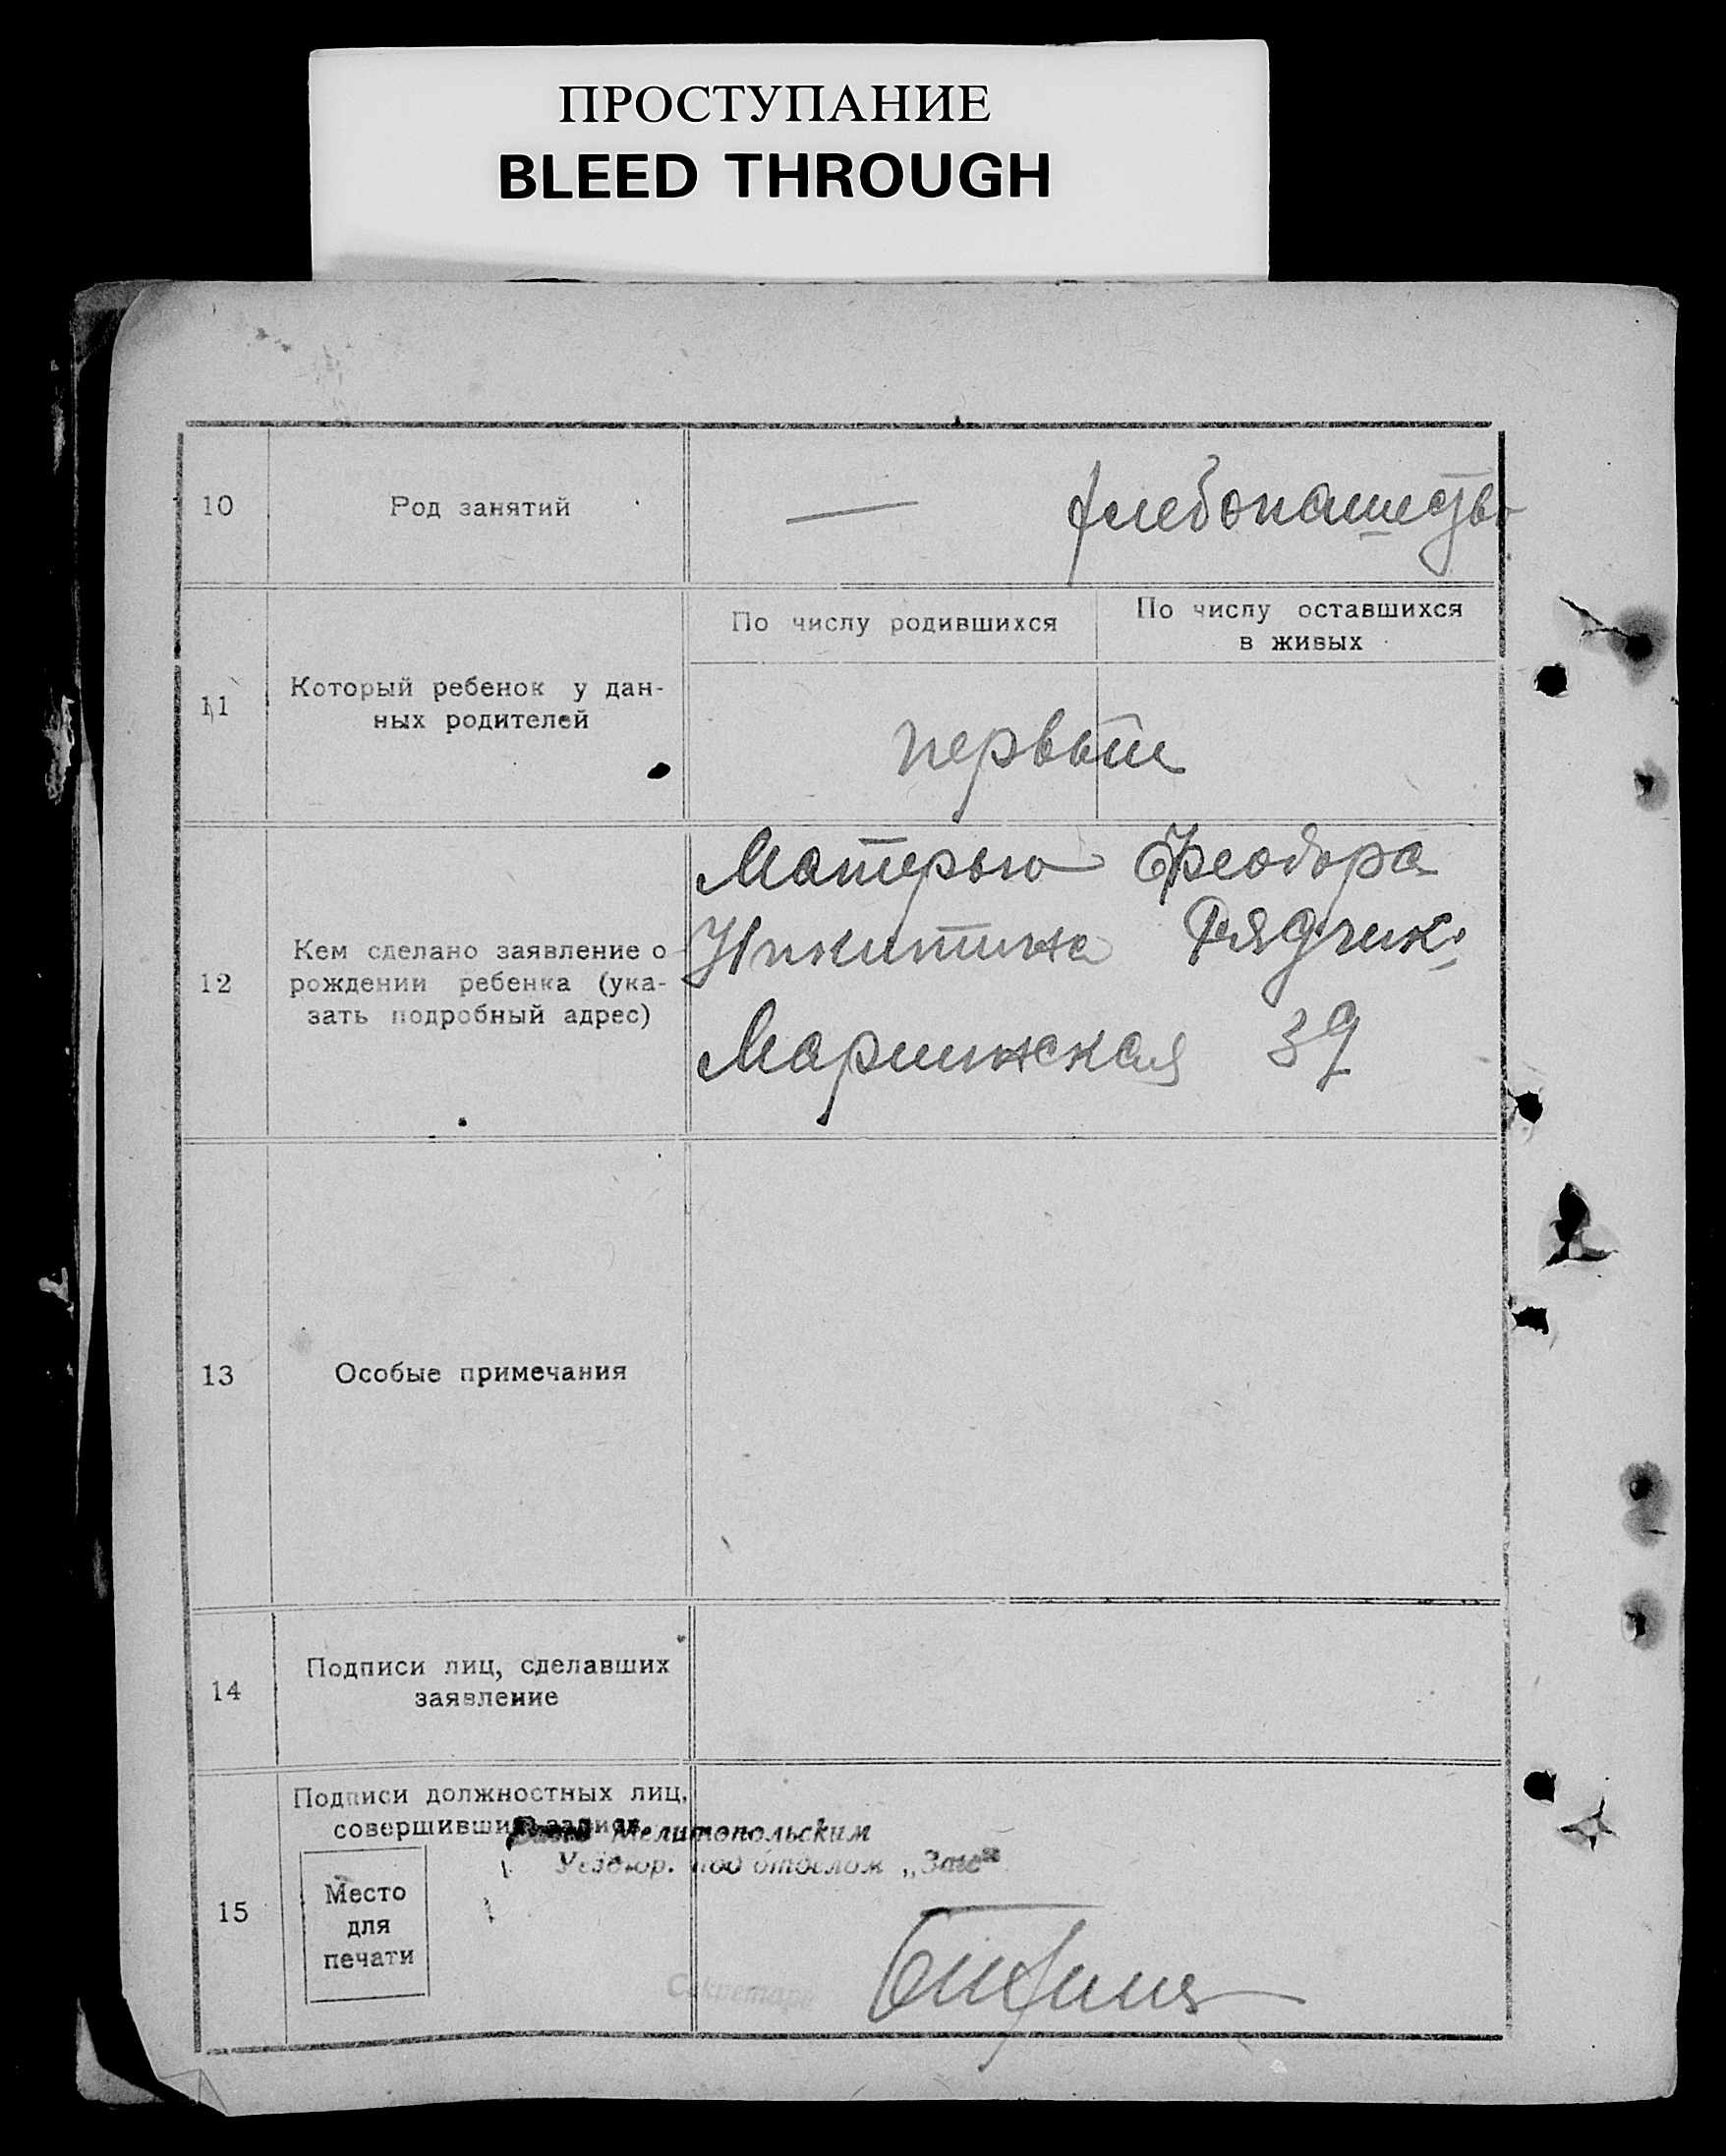 ПРОСТУПАНИЕ
BLEED THROUGH
10 Род занятий — хлебопашество
11 Который ребенок у дан-
ных родителей
По числу родившихся
По числу оставшихся
в живых
первый
12 Кем сделано заявление о
рождении ребенка (ука-
зать подробный адрес)
Матерью Феодора
Никитина
Мариинская 39
13 Особые примечания
14 Подписи лиц, сделавших
заявление
15 Подписи должностных лиц,
совершивших запись
Мелитопольским
под отделом „Загс"
Место
для
печати
Секретарь